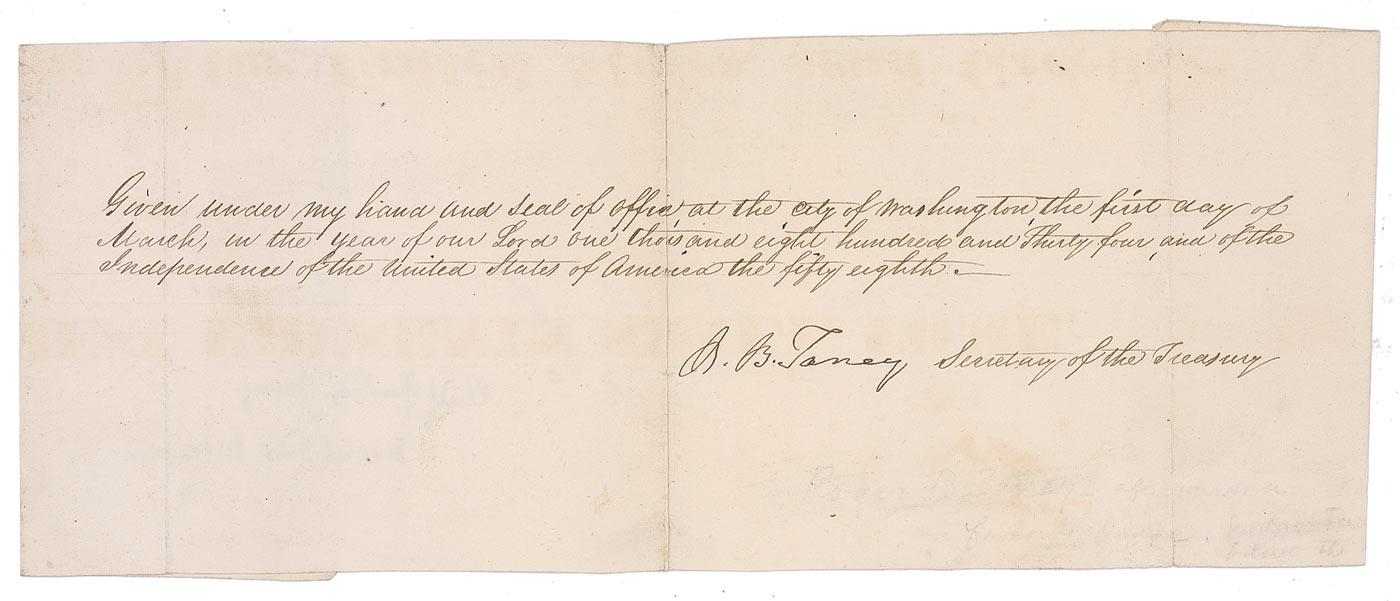 Given under my hand and seal of office at the city of Washington the first day of
March, in the year of our Lord one thousand eight hundred and Thirty four, and of the
Independence of the United States of America the fifty eighth.
R. B. Taney Secretary of the Treasury
Roger B. Taney afterwards a